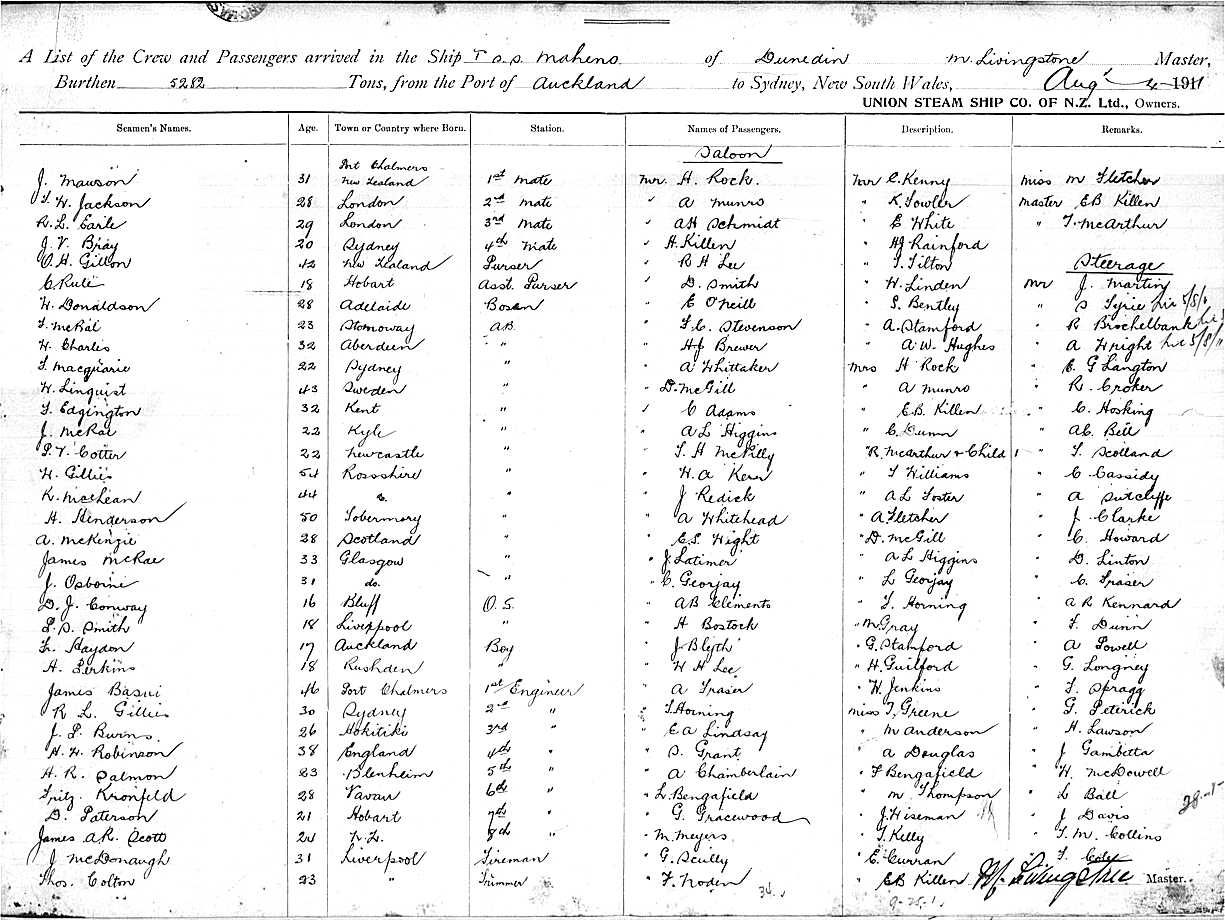 A List of the Crew and Passengers arrived in the Ship T s.s. Maheno of Dunedin M. Livingstone Master,
Burthen 5282 Tons, from the Port of Auckland to Sydney, New South Wales, Aug 1911
UNION STEAM SHIP CO. OF N.Z. Ltd., Owners.
Seamen's Names. Age. Town or Country where Born. Station. Names of Passengers. Description. Remarks.
Saloon
Port Chalmers
J. Mawson 31 New Zealand 1st Mate Mr. H. Rock. Mr C. Kenny Miss M Fletcher
W. Jackson 28 London 2nd Mate " A Munro " K. Fowler Master EB Killen
R. L. Earle 29 London 3rd Mate " AH Schmidt " E White " T. McArthur
J. V. Bray 20 Sydney 4th Mate " H. Killen " HJ Rainford
H. Gillon 42 New Zealand Purser " R H Lee " T. Tilton Steerage
C Rule 18 Hobart Asst. Purser " D. Smith " W. Linden Mr J. Martin
W. Donaldson 28 Adelaide Bosen " E O'Neill " S. Bentley " S Pyrie
T. McRae 23 Stornoway A.B. " F. C. Stevenson " A. Stamford " R Brochelbank
W. Charles 32 Aberdeen " " HJ Brewer " A. W. Hughes " A Wright
T. Macquarie 22 Sydney " " A Whittaker Mrs H Rock " E. G Langton
W. Linquist 43 Sweden " " D. McGill " A Munro " R. Croker
T. Edgington 32 Kent " " C Adams " EB Killen " C. Hosking
J. McRae 22 Kyle " " A L Higgins " C. Dunn " AC. Bell
P. V. Cotter 22 Newcastle " " T. H McRilly " R McArthur + Child 1 " T. Scolland
W. Gillies 54 Rossshire " " W. A Kerr " T Williams " C Cassidy
K. McLean 44 do. " " J Redick " A L Foster " A Sutcliffe
H. Henderson 50 Tobermory " " A Whitehead " A Fletcher " J Clarke
A. McKenzie 28 Scotland " " E S. Wight " D. McGill " C. Howard
James McRae 33 Glasgow " " J. Latimer " A L Higgins " D. Linton
J. Osborne 31 do. " " C. Georjay " L Georjay " C. Fraser
D. J. Conway 16 Bluff O.S. " AB Clements " T. Horning " A R Kennard
P. S. Smith 18 Liverpool " " H Bostock " M. Gray " T. Dunn
Haydon 17 Auckland Boy " J Blyth " G. Stamford " A Powell
H. Perkins 18 Rushden " " W H Lee " H. Guilford " G. Longney
James Basni 46 Port Chalmers 1st Engineer " A Fraser " W. Jenkins " T. Spragg
R L. Gillies 30 Sydney 2nd " " T. Horning Miss T. Greene " G. Peterick
J. P. Burns 26 Hokitiki 3rd " " E A Lindsay " M Anderson " H. Lawson
H. W. Robinson 38 England 4th " " D. Grant " A Douglas " J Gambetta
H. R. Salmon 23 Blenheim 5th " " A Chamberlain " F Bengafield " W. McDowell
Fritz Kronfeld 28 Vavau 6th " " L. Bengafield " M Thompson " L Ball
D. Paterson 21 Hobart 7th " " G. Gracewood " J. Wiseman " J Davis
James A.R. Scott 24 N.Z. 8th " " M. Meyers " T. Kelly " T. M. Collins
J McDonaugh 31 Liverpool Fireman " G. Scully " E. Curran " T. Cole
Thos. Colton 23 " Trimmer " F. Noden " EB Killen M. Livingstone Master.
34